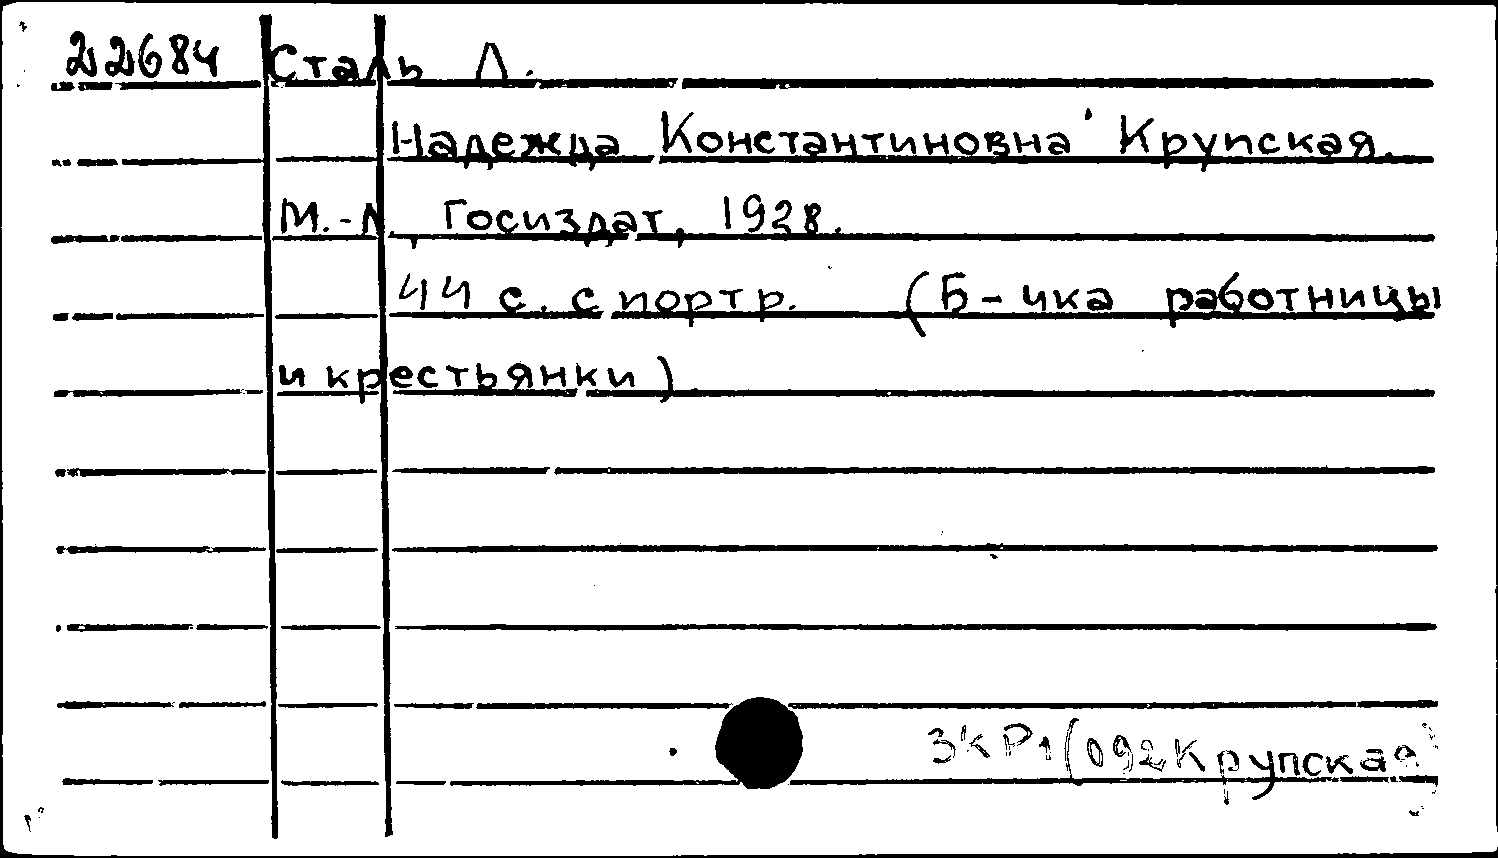 22684 Сталь Л.
Надежда Константиновна Крупская.
М.-Л., Госиздат, 1928.
44 с. с портр. (Б-чка работницы
и крестьянки)
3КР1(092Крупская)